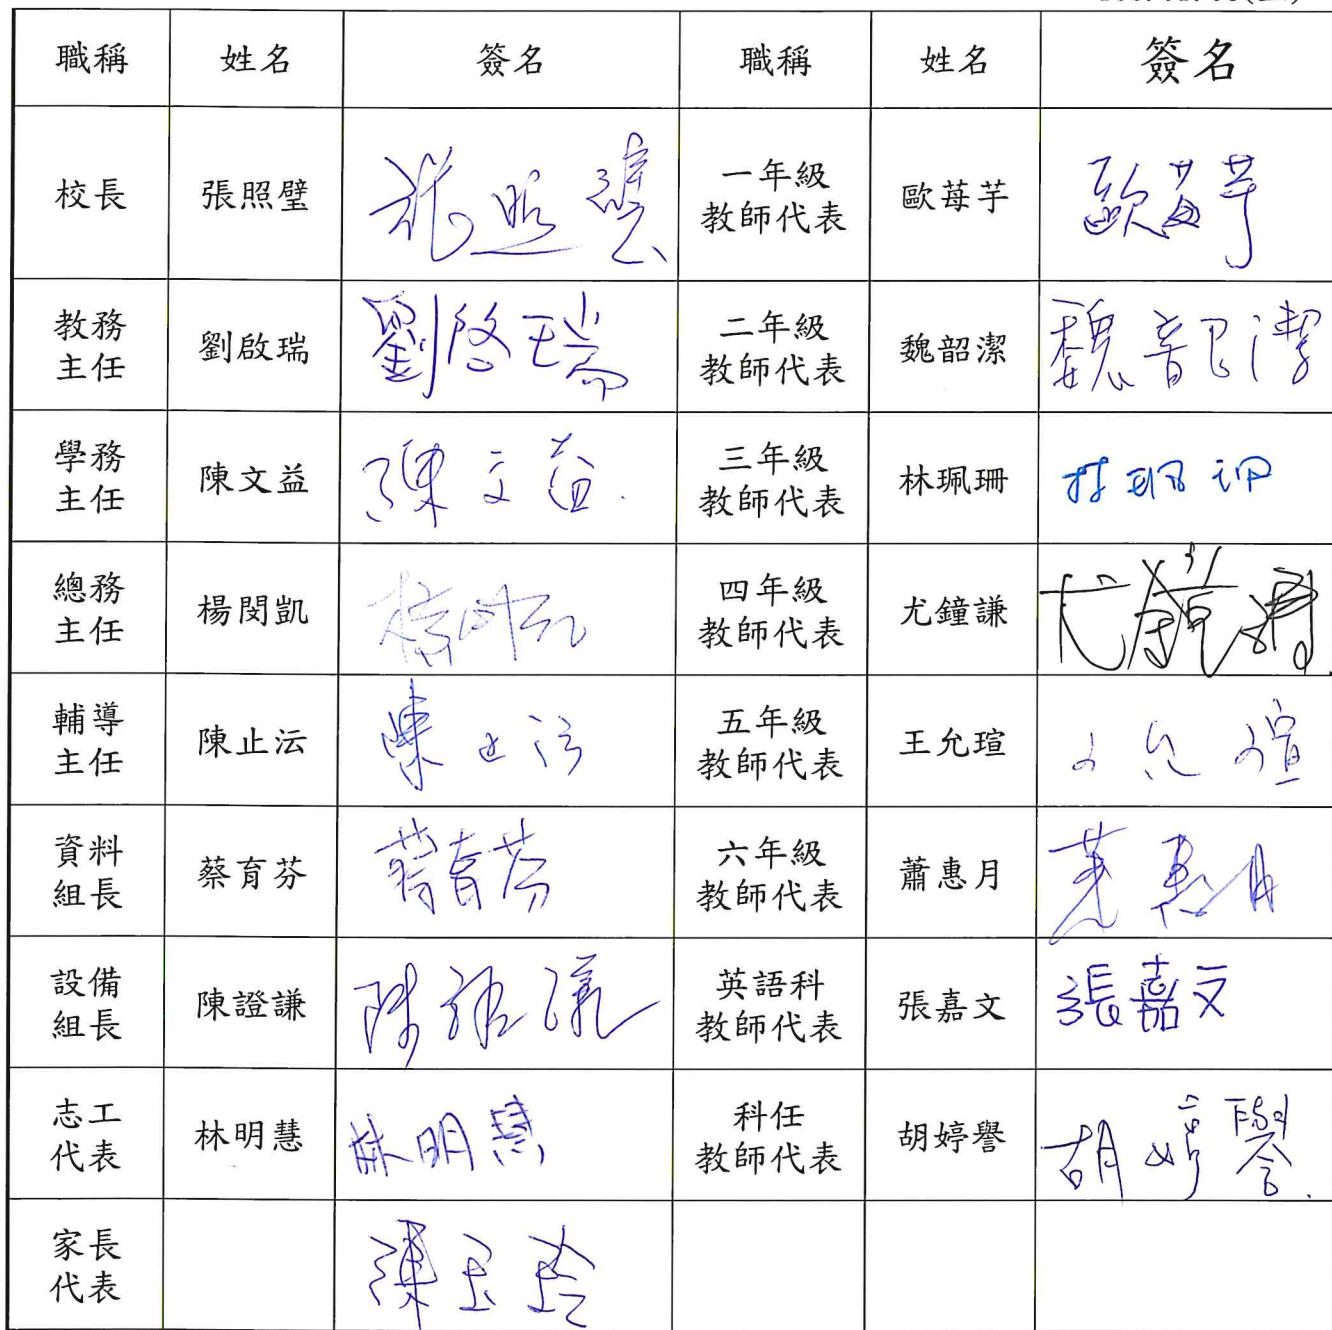 職稱 姓名 簽名 職稱 姓名 簽名
校長 張照璧 張照璧 一年級 教師代表 歐苺芋 歐苺芋
教務 主任 劉啟瑞 劉啓瑞 二年級 教師代表 魏韶潔 魏韶潔
學務 主任 陳文益 陳文益 三年級 教師代表 林珮珊 林珮珊
總務 主任 楊閔凱 楊閔凱 四年級 教師代表 尤鐘謙 尤鐘謙
輔導 主任 陳止沄 陳止沄 五年級 教師代表 王允瑄 王允瑄
資料 組長 蔡育芬 蔡育芬 六年級 教師代表 蕭惠月 蕭惠月
設備 組長 陳證謙 陳證謙 英語科 教師代表 張嘉文 張嘉文
志工 代表 林明慧 林明慧 科任 教師代表 胡婷譽 胡婷譽
家長 代表 陳玉玲